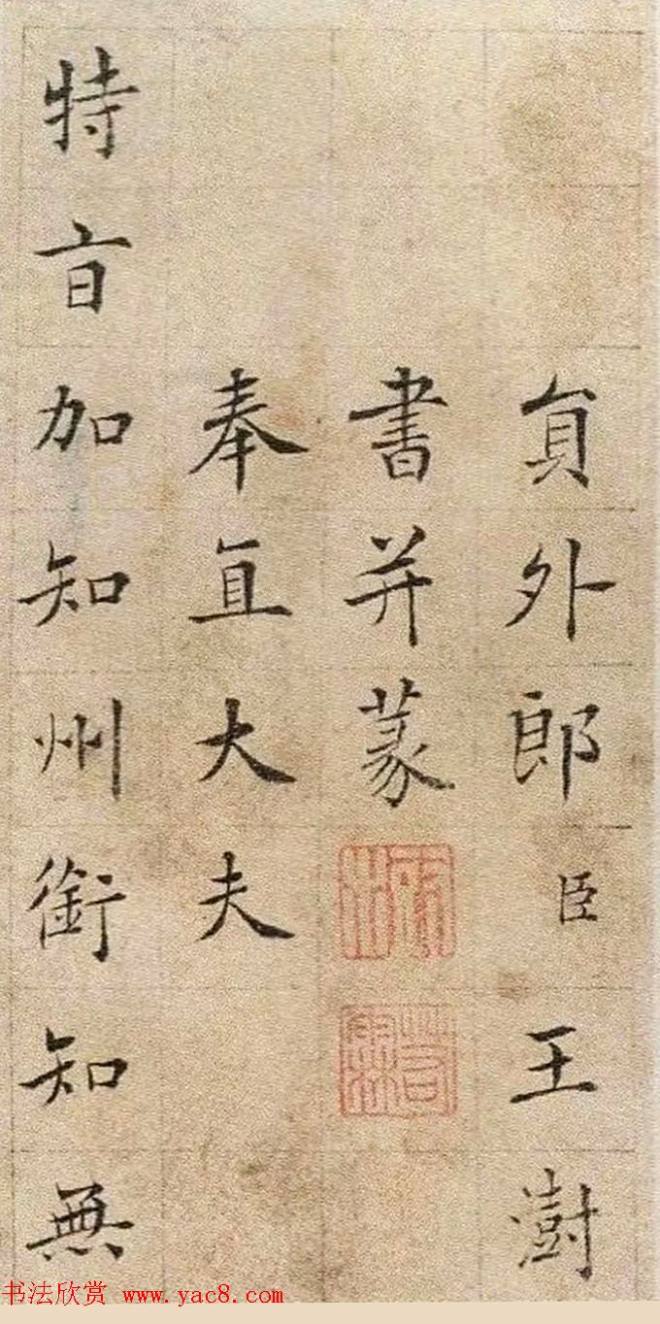 貟外郎臣王澍
書并篆
奉直大夫
特旨加知州銜知無
书法欣赏 www.yac8.com